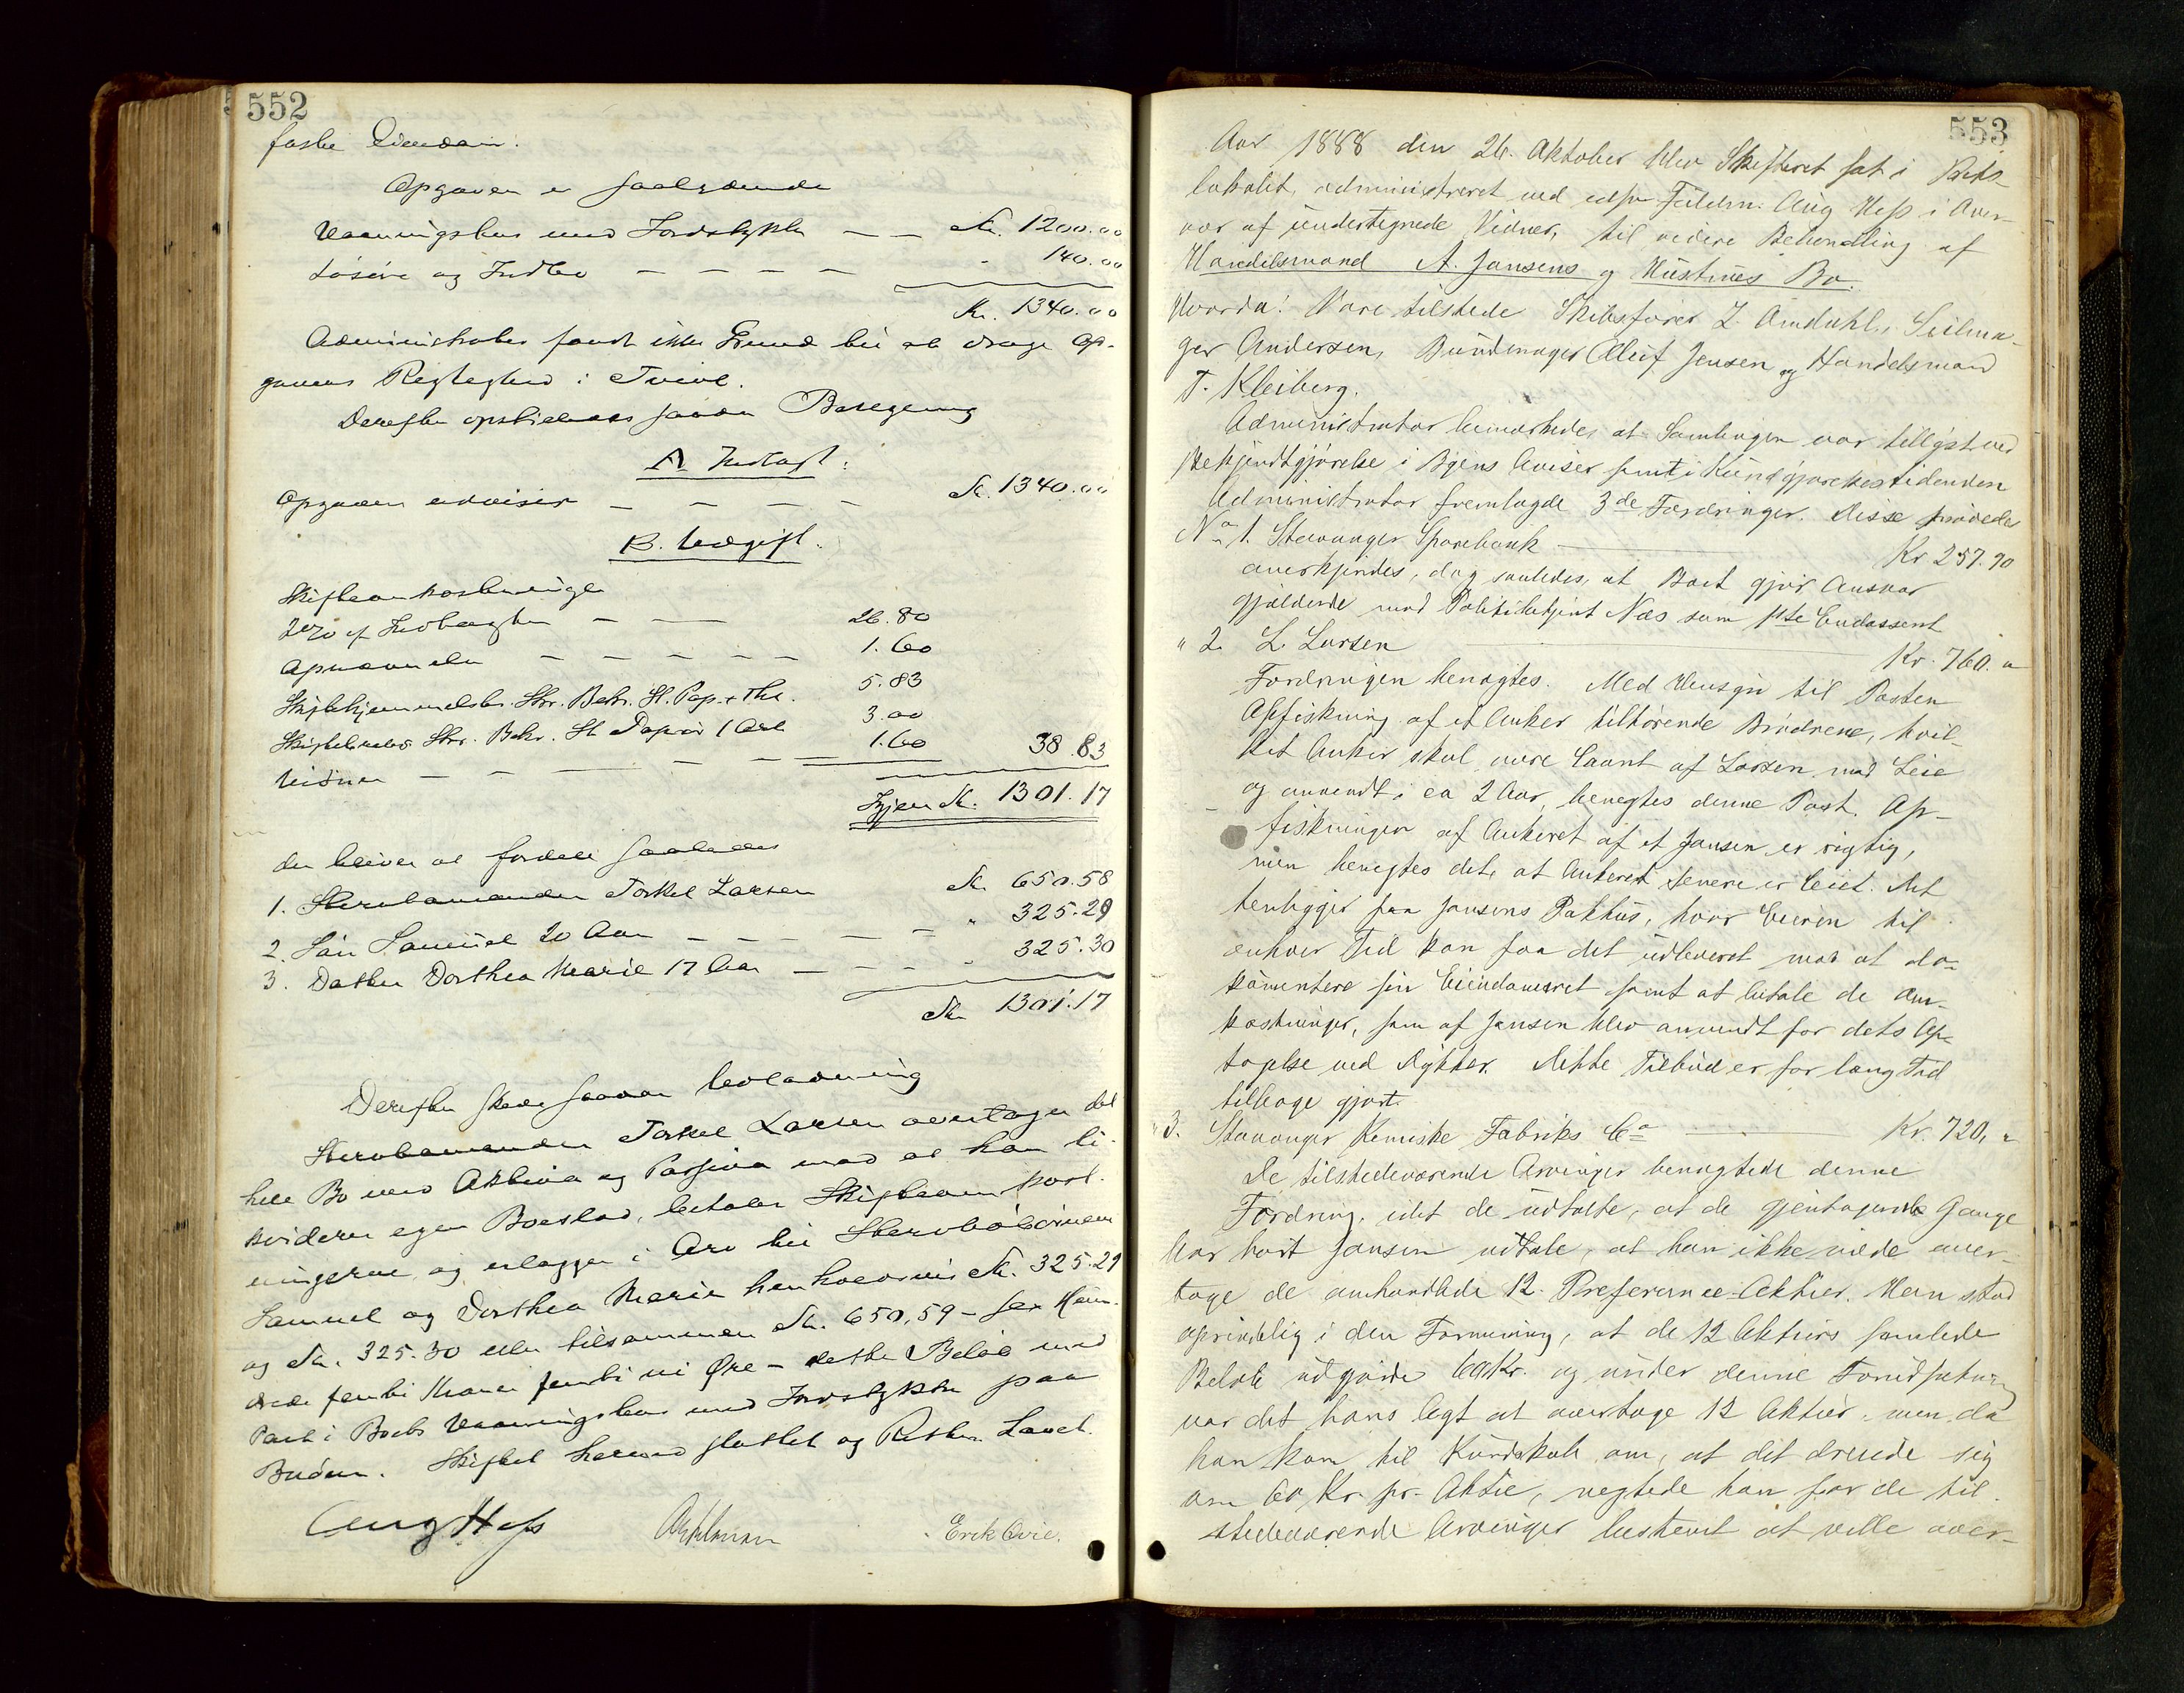 552
faste Eiendom.
Opgaven er saalydende
Vaaningshus med Jordstykke — — Kr. 1200.00
Løsøre og Indbo — — — — " 140.00
Kr. 1340.00
Administrator fandt ikke Grund til at drage Op-
gavens Rigtighed i Tvivl.
Derefter opstilledes saadan Beregning
A. Indtægt:
Opgaven udviser — — — — Kr. 1340.00
B. Udgift.
Skifteomkostninger
2% af Indtægten — — — 26.80
Opnævnelse — — — — — 1.60
Skiftehjemmelsbr. Skr. Bekr. St. Pap. + Thl. 5.83
Skiftebrev Skr. Bekr. St. Papir 1 Ark 3.00
Vidner — — — — — 1.60 38.83
Igjen Kr. 1301.17
der bliver at fordele saaledes
1. Stervbomanden Torkel Larsen Kr. 650.58
2. Søn Samuel 20 Aar — — — — — " 325.29
3. Datter Dorthea Marie 17 Aar — — — " 325.30
Kr. 1301.17
Derefter skede saadan Udlodning
Stervbomanden Torkel Larsen overtager det
hele Bo med Aktiva og Passiva mod at han li-
kviderer egen Boeslod, betaler Skifteomkost-
ningerne og udlægger i Arv til Stervbobørnene
Samuel og Dorthea Marie henholdsvis Kr. 325.29
og Kr. 325.30 eller tilsammen Kr. 650,59 – sex Hun-
drede femti Kroner femti ni Øre – dette Beløb med
Pant i Boets Vaaningshus med Jordstykke paa
Buøen. Skiftet hermed sluttet og Retten hævet.
Aug Hess Erik Qvie.
553
Aar 1888 den 26. Oktober blev Skifteret sat i Rets-
lokalet, administreret ved edsv Fuldm. Aug Hess i Over-
vær af undertegnede Vidner, til videre Behandling af
Handelsmand A. Jansens og Hustrues Bo.
Hvorda! Vare tilstede Skibsfører Z. Amdahl, Seilma-
ger Andersen, Bundtmager Olluf Jensen og Handelsmand
T. Kleiberg.
Administrator bemærkede, at Samlingen var tillyst ved
Bekjendtgjørelse i Byens Aviser samt i Kundgjørelsestidenden
Administrator fremlagde 3de Fordringer. Disse prøvedes
No 1. Stavanger Sparebank — Kr 257.90
anerkjendes, dog saaledes, at Boet gjør Ansvar
gjældende mod Politibetjent Næs som 1ste Endossent
" 2. L. Larsen — Kr. 760. "
Fordringen benægtes. Med Hensyn til Posten
Opfiskning af et Anker tilhørende Brødrene, hvil-
ket Anker skal være laant af Larsen mod Leie
og anvendt i ca 2 Aar, benegtes denne Post. Op-
fiskningen af Ankeret af et Jansen er rigtig,
men benegtes det, at Ankeret senere er leiet. Det
henligger paa Jansens Pakhus, hvor Eieren til
enhver Tid kan faa det udleveret mod at do-
kumentere sin Eiendomsret samt at betale de Om-
kostninger, som af Jansen blev anvendt for dets Op-
tagelse ved Dykker. Dette Tilbud er for lang Tid
tilbage gjort.
" 3. Stavanger Kemiske Fabriks Co — Kr. 720, "
De tilstedeværende Arvinger benægtede denne
Fordring, idet de udtalte, at de gjentagende Gange
har hørt Jansen udtale, at han ikke vilde over-
tage de omhandlede 12 Preference-Aktier. Han stod
oprindelig i den Formening, at de 12 Aktiers samlede
Beløb udgjorde 60 Kr. og under denne Forudsætning
var det hans Agt at overtage 12 Aktier, men da
han kom til Kundskab om, at det dreiede sig
om 60 Kr. pr. Aktie, negtede han for de til-
stedeværende Arvinger bestemt at ville over-